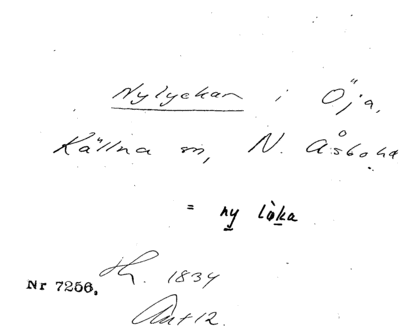 Nylyckan i Öja,
Källna sn, N. Åsbohd
= ny lòka
Nr 7256.
1834
Ant 12.